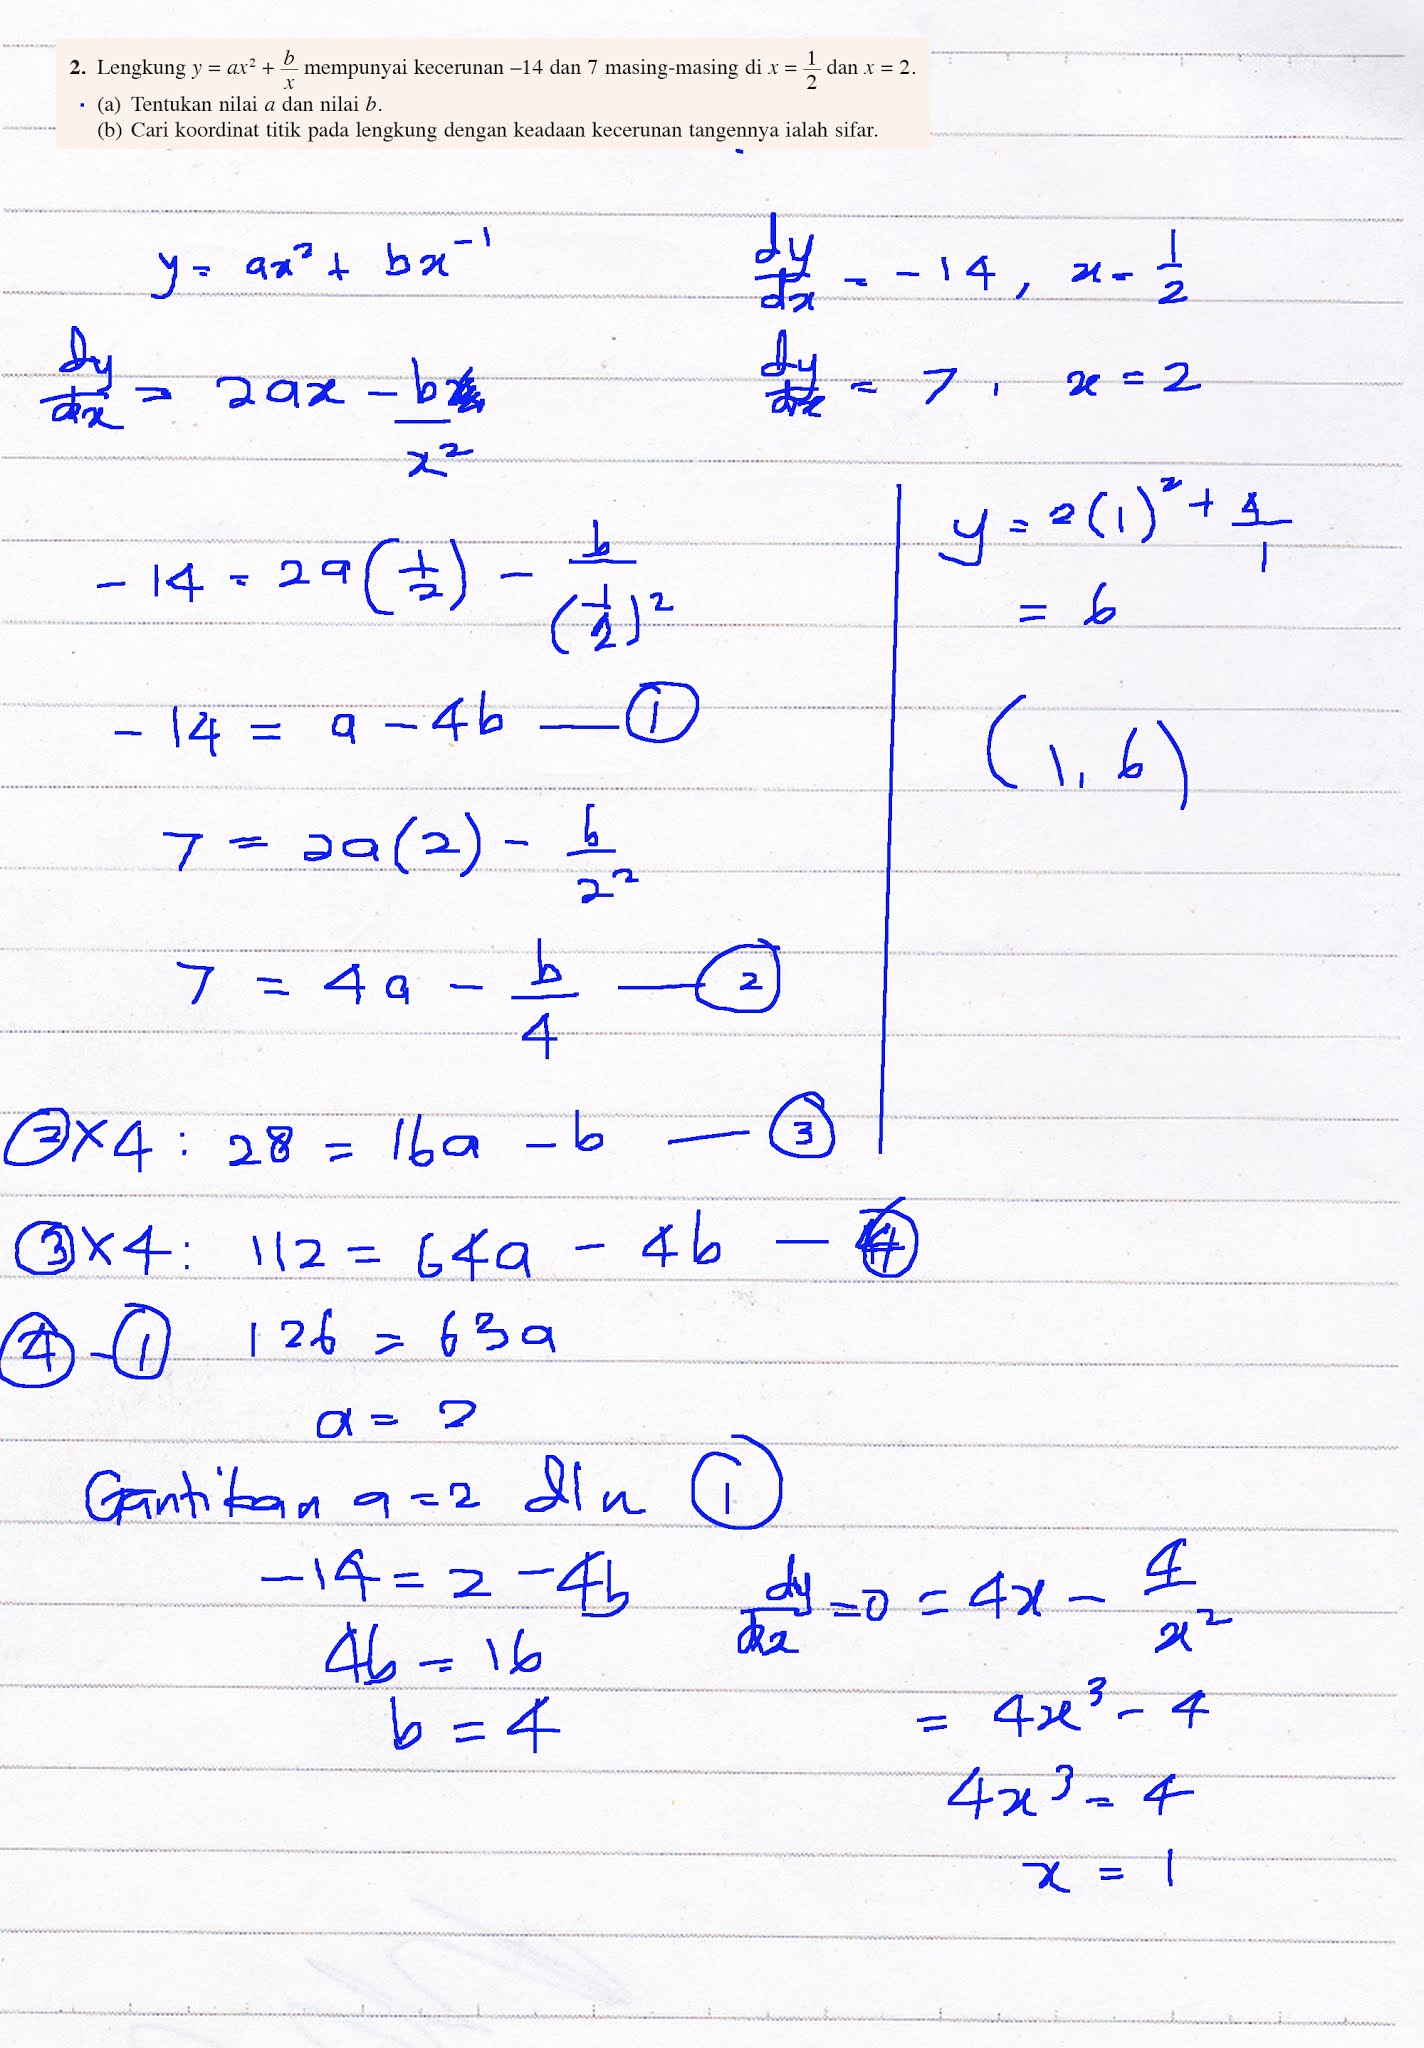 2. Lengkung y = ax² + b/x mempunyai kecerunan –14 dan 7 masing-masing di x = 1/2 dan x = 2.
(a) Tentukan nilai a dan nilai b.
(b) Cari koordinat titik pada lengkung dengan keadaan kecerunan tangennya ialah sifar.
y = ax² + bx⁻¹
dy/dx = 2ax - b/x²
-14 = 2a(1/2) - b/(1/2)²
-14 = a - 4b — ①
7 = 2a(2) - b/2²
7 = 4a - b/4 — ②
②×4: 28 = 16a - b — ③
③×4: 112 = 64a - 4b — ④
④-① 126 = 63a
a = 2
Gantikan a = 2 dln ①
-14 = 2 - 4b
4b = 16
b = 4
dy/dx = -14, x = 1/2
dy/dx = 7, x = 2
y = 2(1)² + 4/1
= 6
(1, 6)
dy/dx = 0 = 4x - 4/x²
= 4x³ - 4
4x³ = 4
x = 1